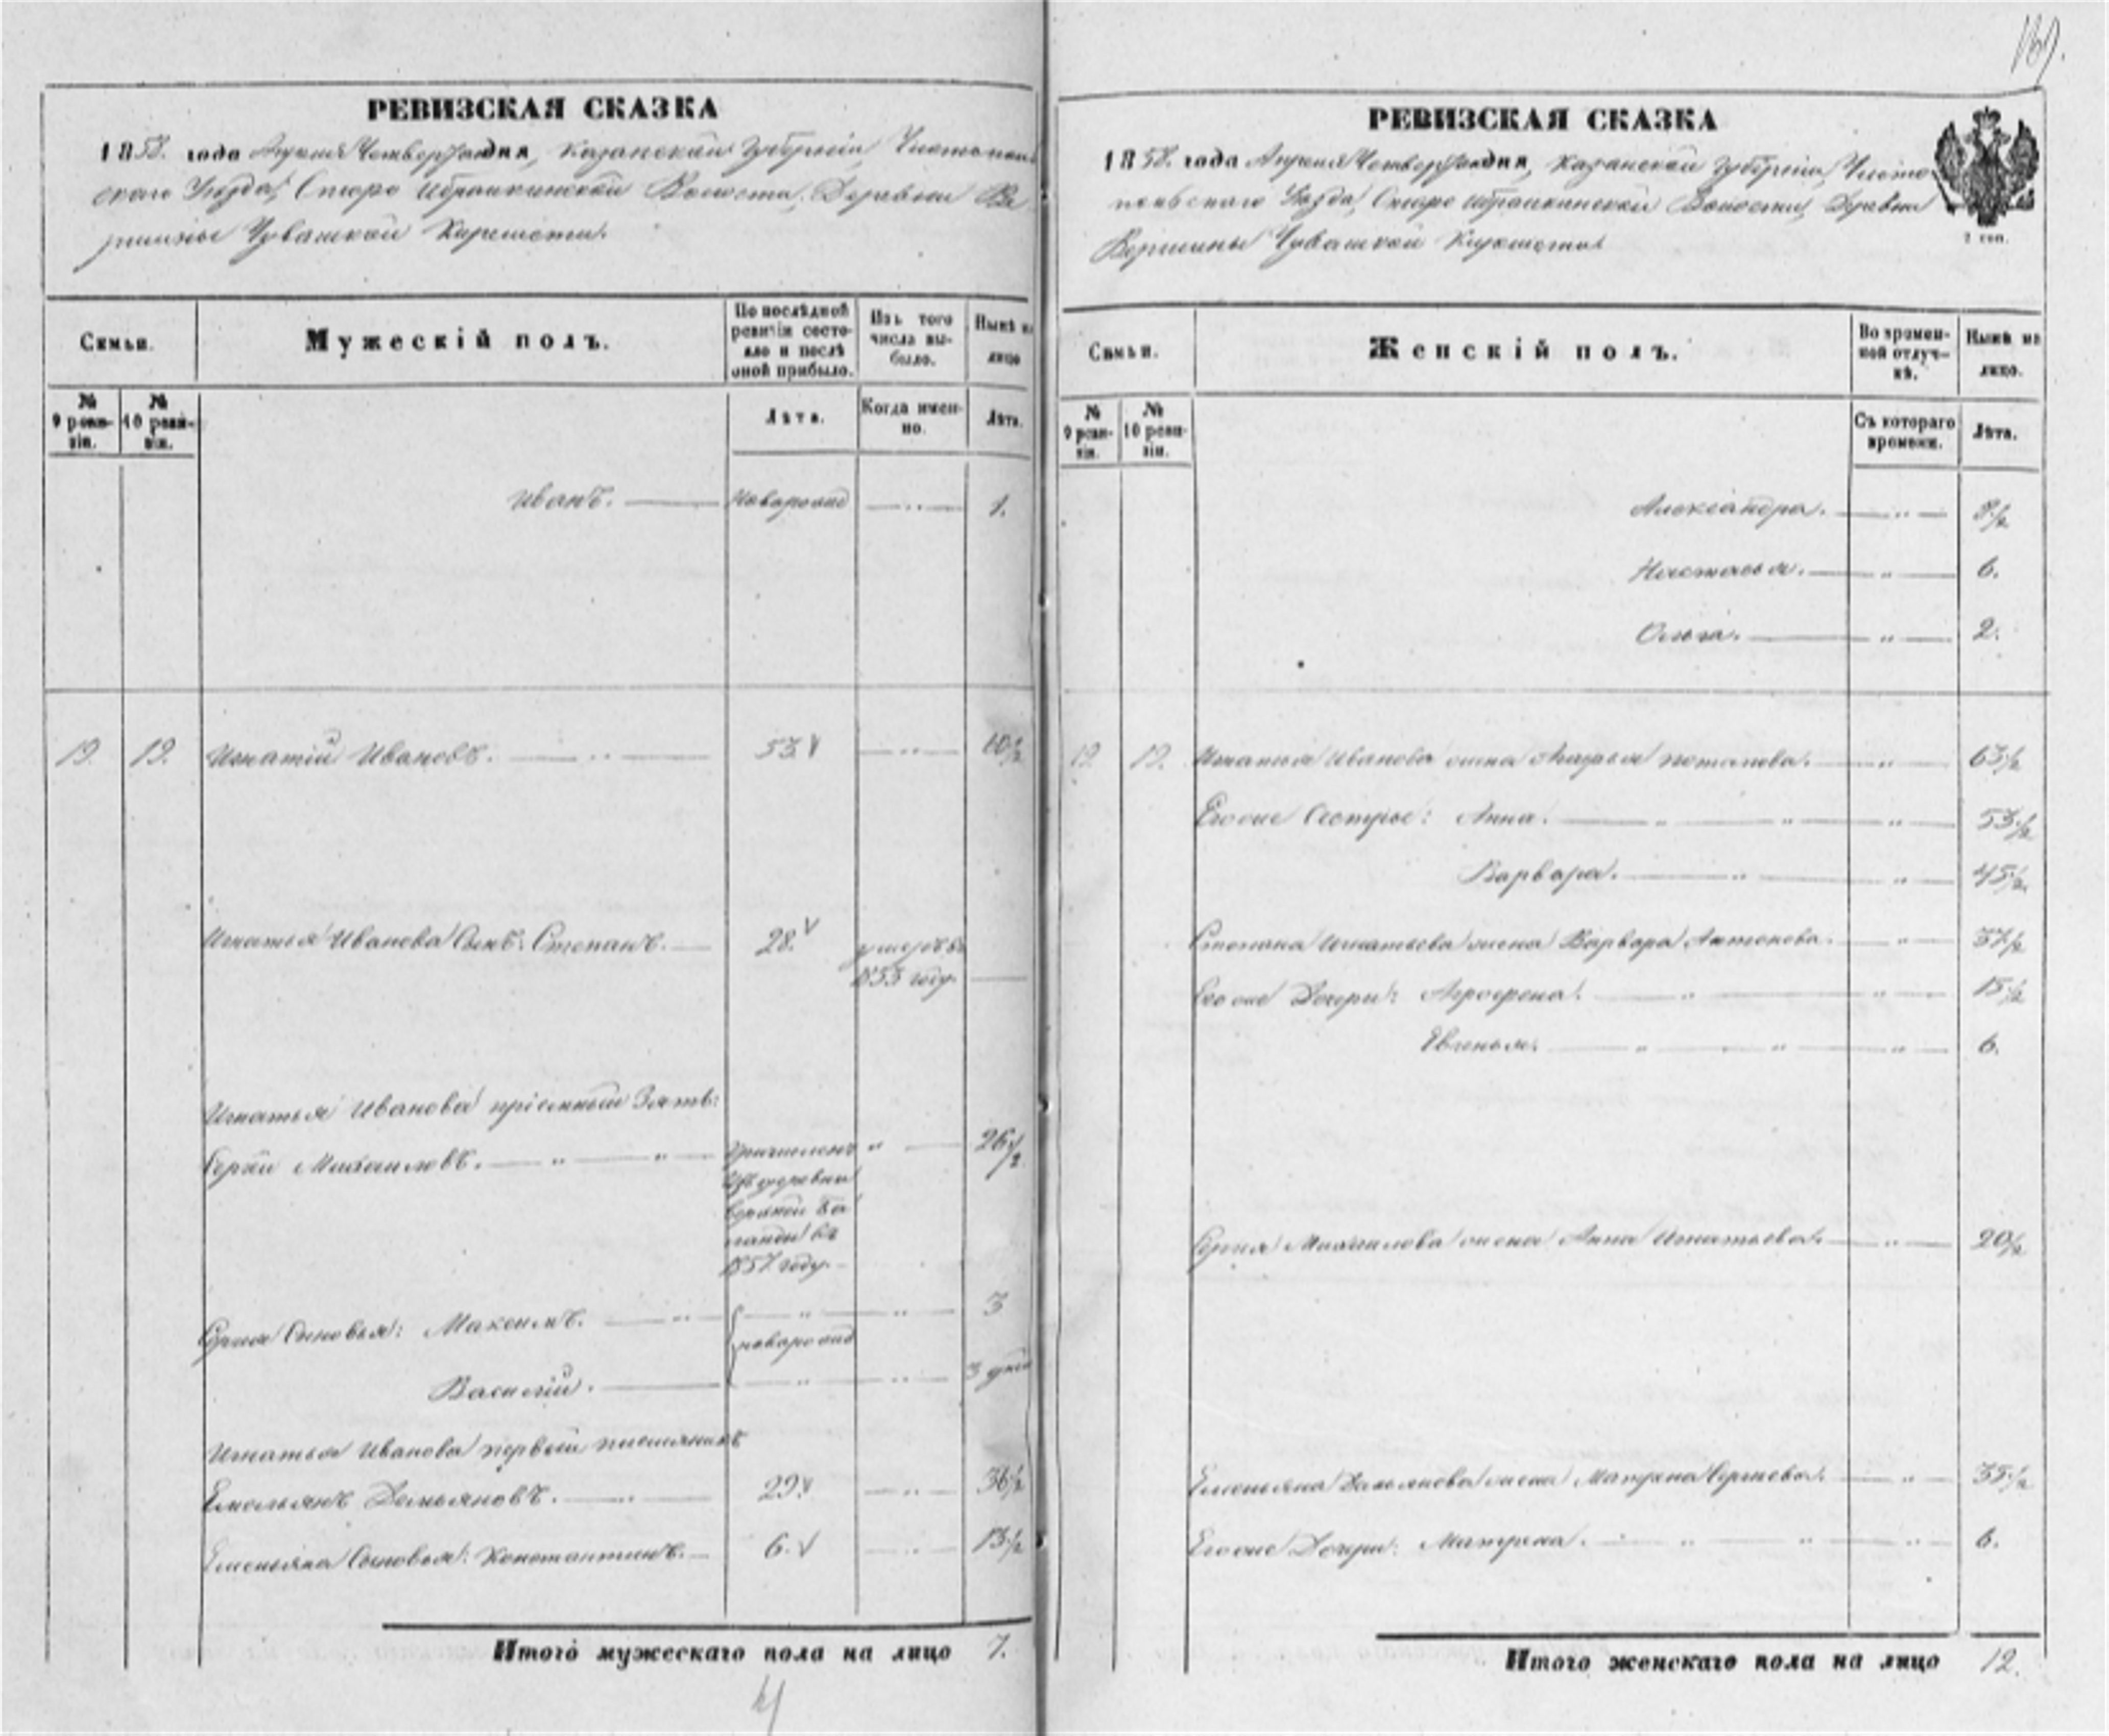 167.
РЕВИЗСКАЯ СКАЗКА
1858. года Апреля Четвертаго дня, Казанской Губернiи Чистополь
скаго Уѣзда, Старо Ибрайкинской Волости, Деревни Ве
ршины Чувашской Киреметь.
Семьи.
Мужескій полъ.
По послѣдней ревизіи состояло и послѣ оной прибыло.
Изъ того числа выбыло.
Нынѣ на лицо
№ 9 ревизіи.
№ 10 ревизіи.
Лѣта.
Когда именно.
Лѣта.
Иванъ. Новорожд 1.
19. 19. Игнатій Ивановъ. 53.
Игнатья Иванова Сынъ: Степанъ. 28. умеръ въ
1855 году
Игнатья Иванова пріемный Зять:
Сергѣй Михайловъ. Причисленъ 26½
изъ деревни
1857 году
Сергея Сыновья: Максимъ. 3
новорожд
Василій. 3 дней
Игнатья Иванова первый племянникъ
Емельянъ Демьяновъ. 29. 36½
Емельяна Сыновья: Константинъ. 6. 13½
Итого мужескаго пола на лицо 7.
РЕВИЗСКАЯ СКАЗКА
1858. года Апреля Четвертаго дня, Казанской Губерніи, Чисто
польскаго Уѣзда, Старо Ибрайкинской Волости, Деревни
Вершины Чувашской Киреметь
2 коп.
Семьи.
Женскій полъ.
Во временной отлучкѣ.
Нынѣ на лицо.
№ 9 ревизіи.
№ 10 ревизіи.
Съ котораго времени.
Лѣта.
Александра. 8½
Настасья. 6.
Ольга. 2.
19. 19. Игнатья Иванова жена Потапова. 63½
Его же Сестры: Анна. 53½
Варвара. 45½
Степана Игнатьева жена Варвара Антонова. 37½
Его же Дочери: Агрофена. 15½
Евгенья. 6.
Сергея Михайлова жена Анна Игнатьева. 20½
Емельяна Демьянова жена Матрена Сергеева. 35½
Его же Дочери: Матрена. 6.
Итого женскаго пола на лицо 12.